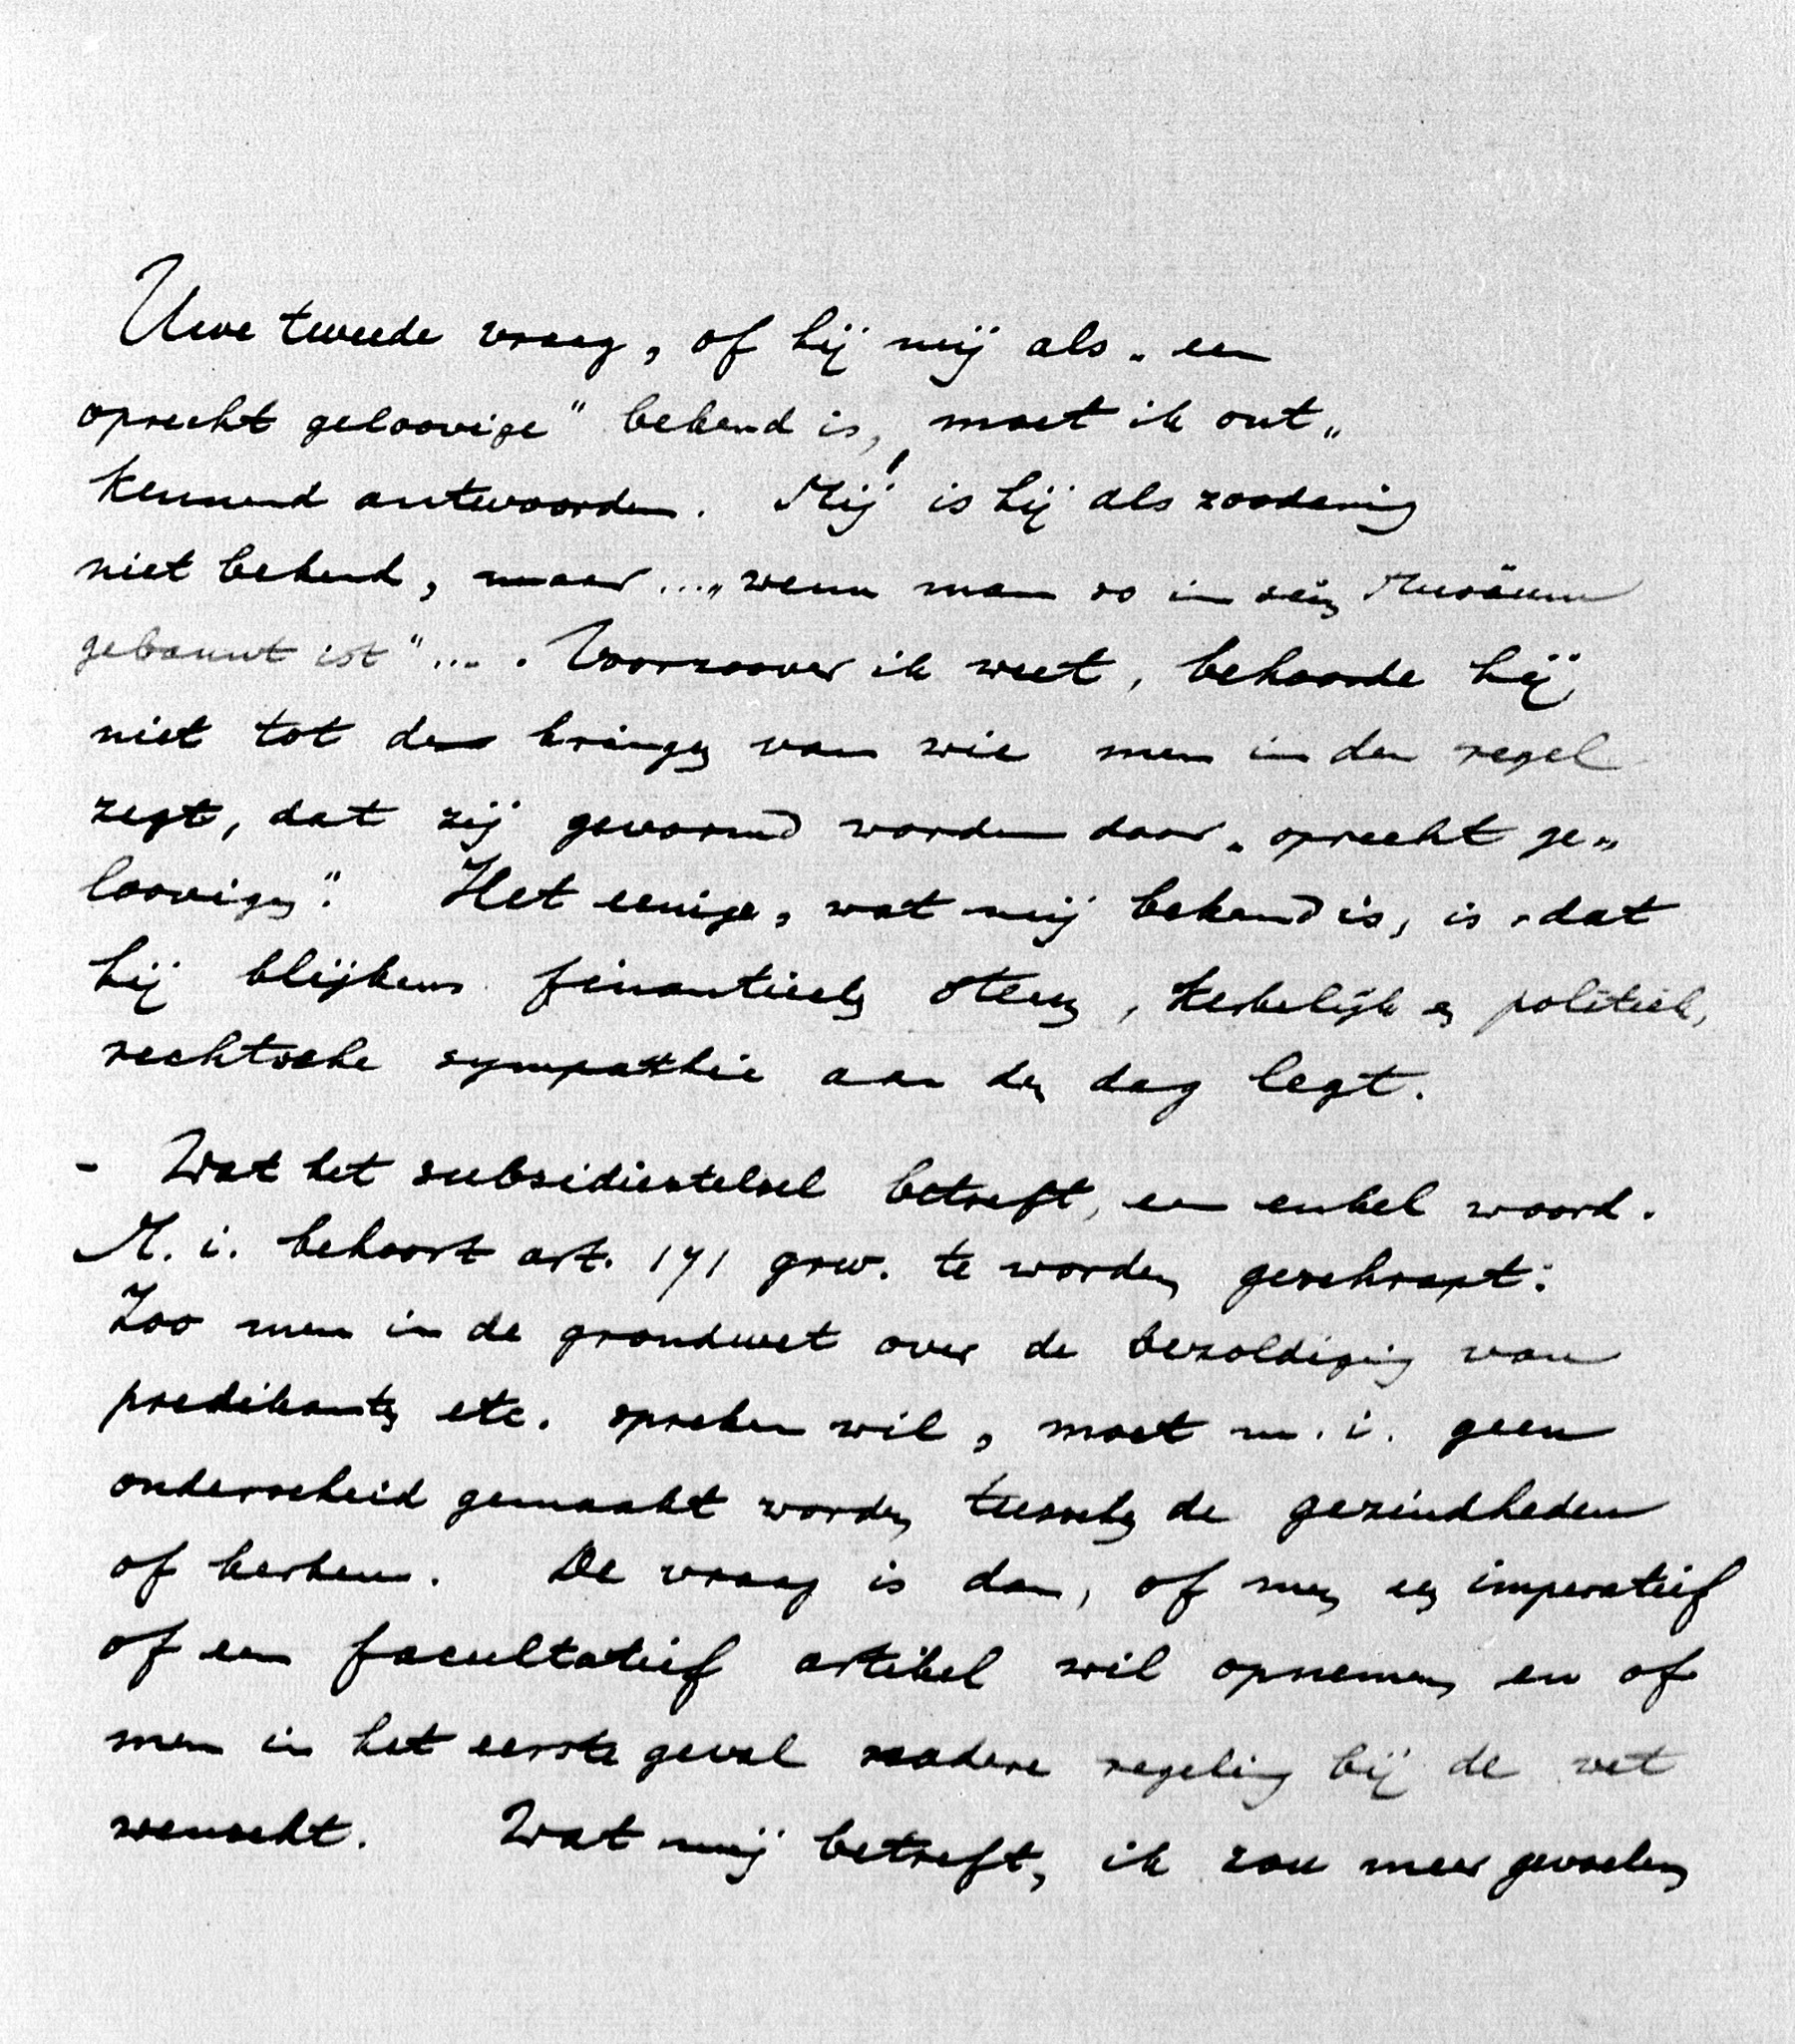 Uwe tweede vraag, of hij mij als „een
oprecht geloovige" bekend is, moet ik ont„
kennend antwoorden. Mij is hij als zoodanig
niet bekend, maar ...„ wenn man so in sein Musäum
gebannt ist" .... Voorzoover ik weet, behoorde hij
niet tot den kringen van wie men in den regel
zegt, dat zij gevormd worden door „oprecht ge„
loovigen". Het eenige, wat mij bekend is, is, dat
hij blijkens finantieelen steun, kerkelijk en politiek,
rechtsche sympathie aan den dag legt.
- Wat het subsidiestelsel betreft, een enkel woord.
M. i. behoort art. 171 grw. te worden geschrapt:
Zoo men in de grondwet over de bezoldiging van
predikanten etc. spreken wil, moet m. i. geen
onderscheid gemaakt worden tusschen de gezindheden
of kerken. De vraag is dan, of men een imperatief
of een facultatief artikel wil opnemen en of
men in het eerste geval nadere regeling bij de wet
wenscht. Wat mij betreft, ik zou meer gevoelen